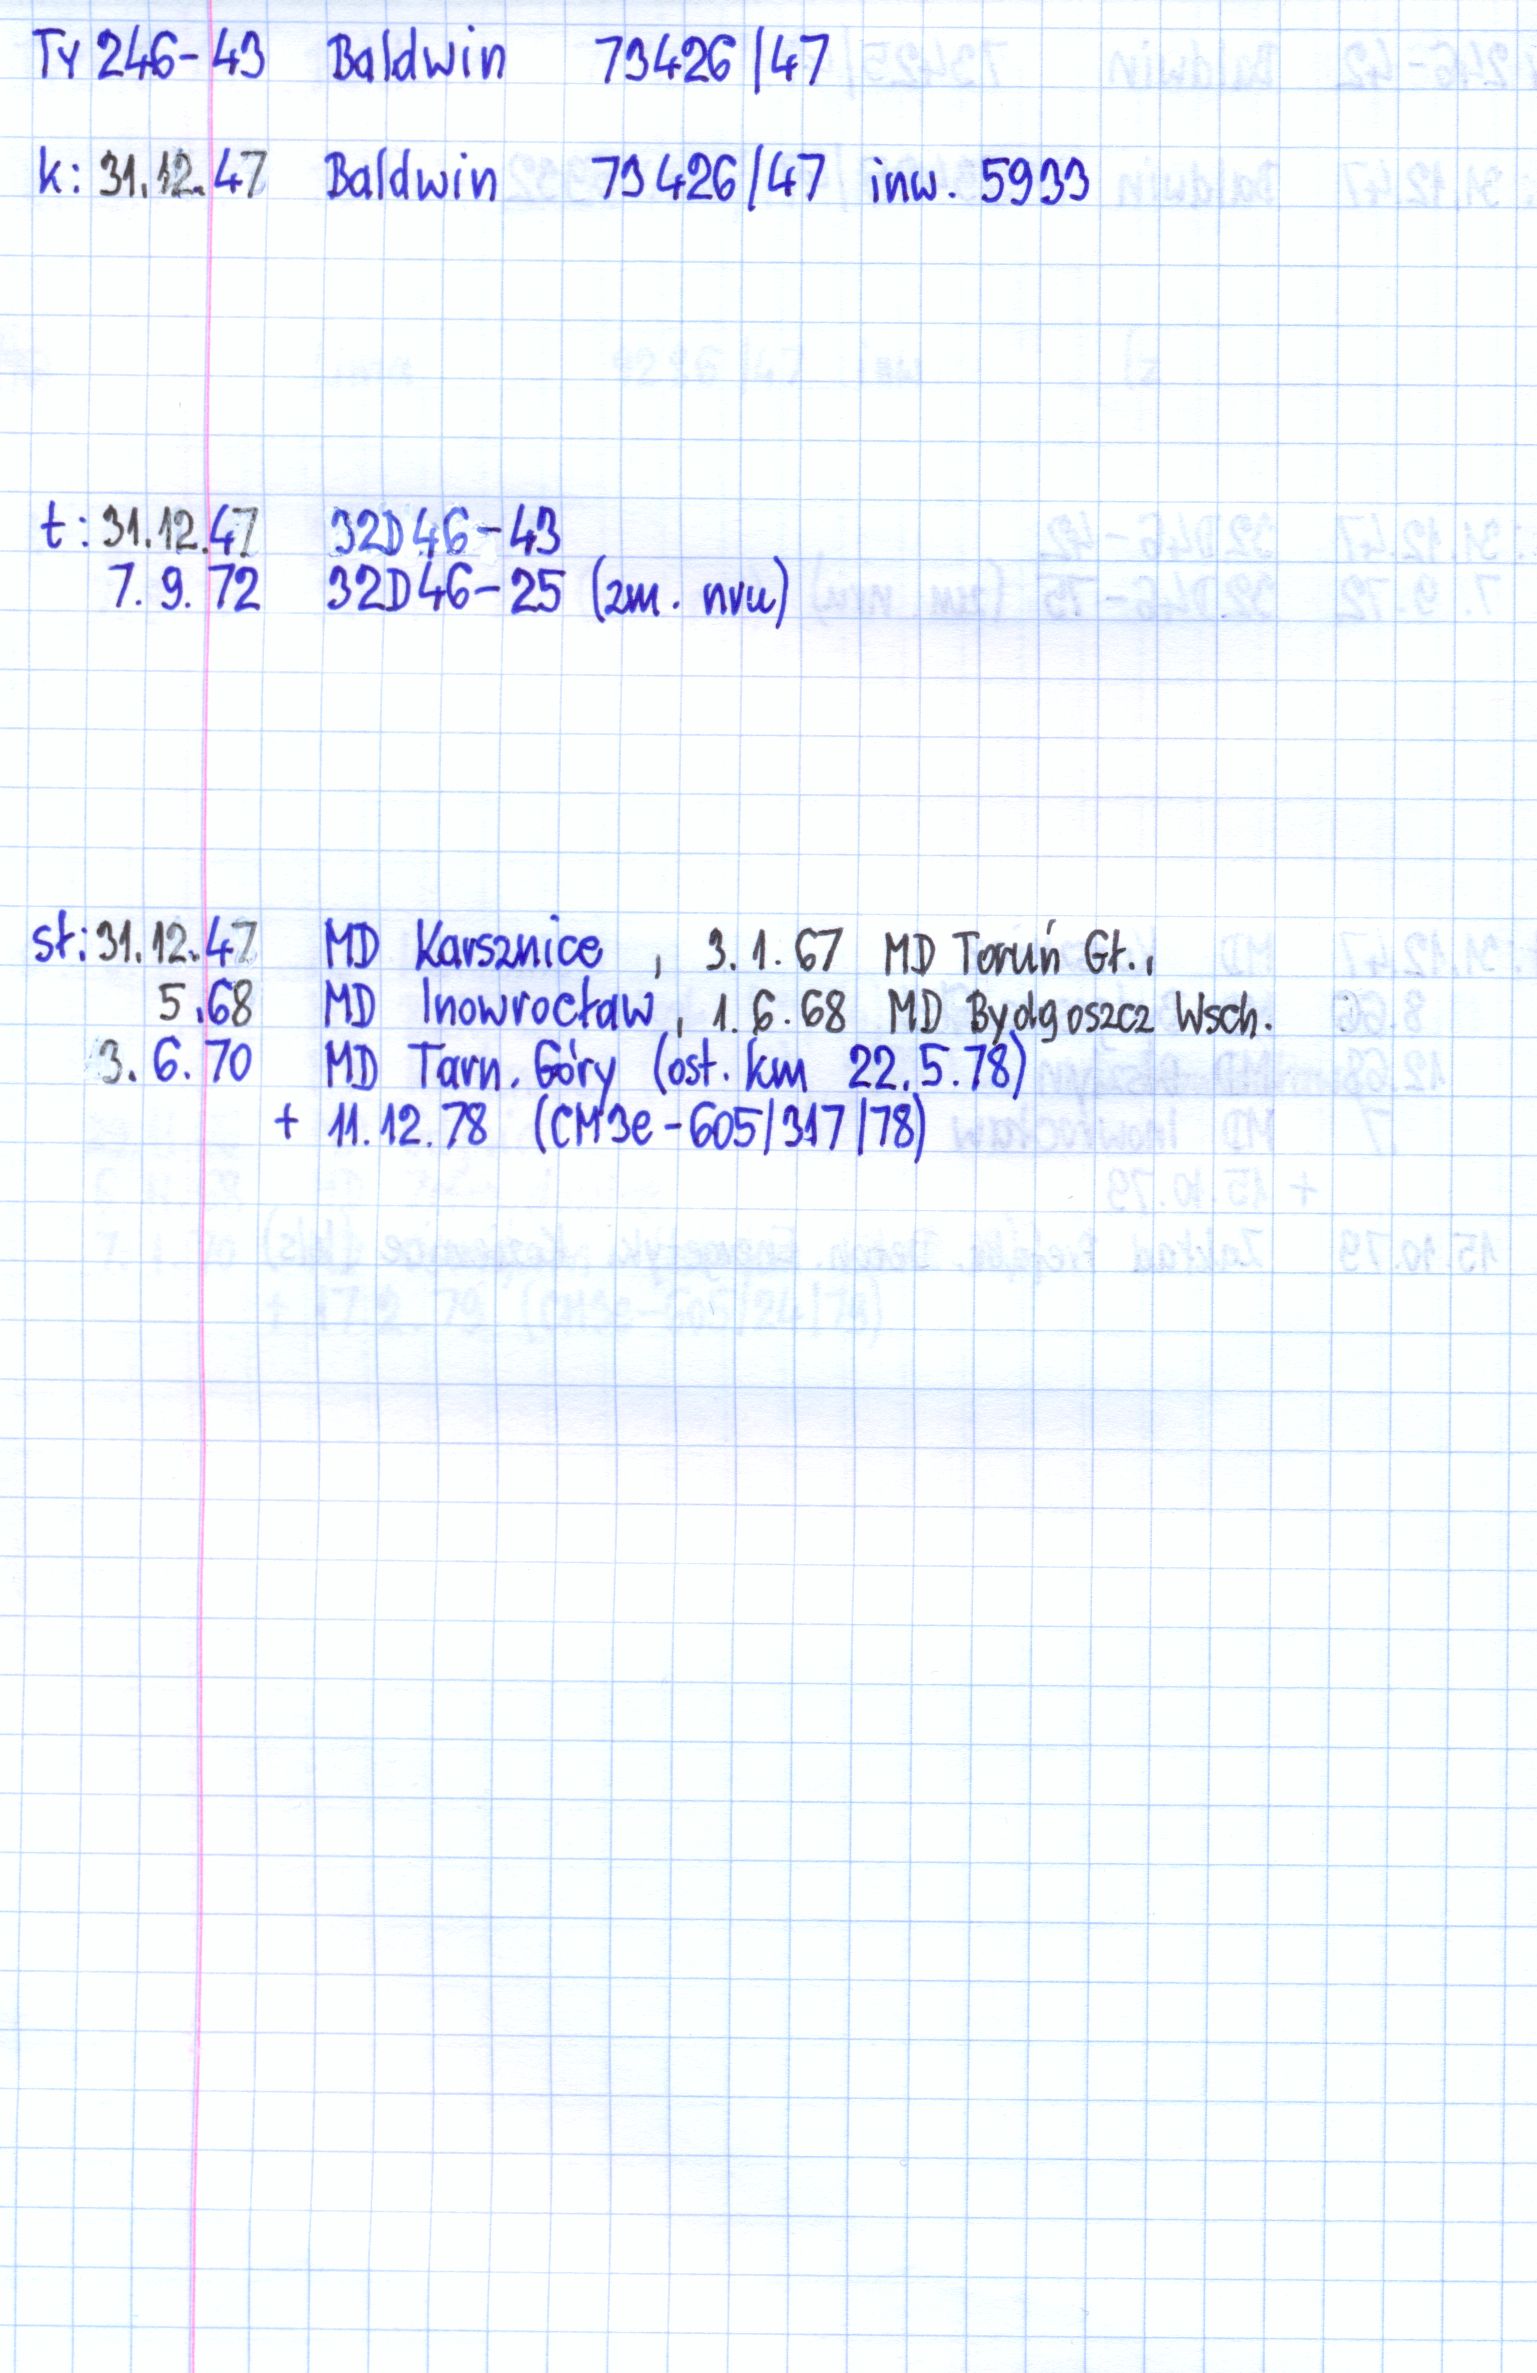 Ty 246-43 Baldwin 73426/47
k: 31.12.47 Baldwin 73426/47 inw. 5933
t: 31.12.47 32D46-43
7.9.72 32D46-25 (zm. nru)
st: 31.12.47 MD Karsznice, 3.1.67 MD Toruń Gł.,
5.68 MD Inowrocław, 1.6.68 MD Bydgoszcz Wsch.
3.6.70 MD Tarn. Góry (ost. km 22.5.78)
+ 11.12.78 (CM3e-605/317/78)